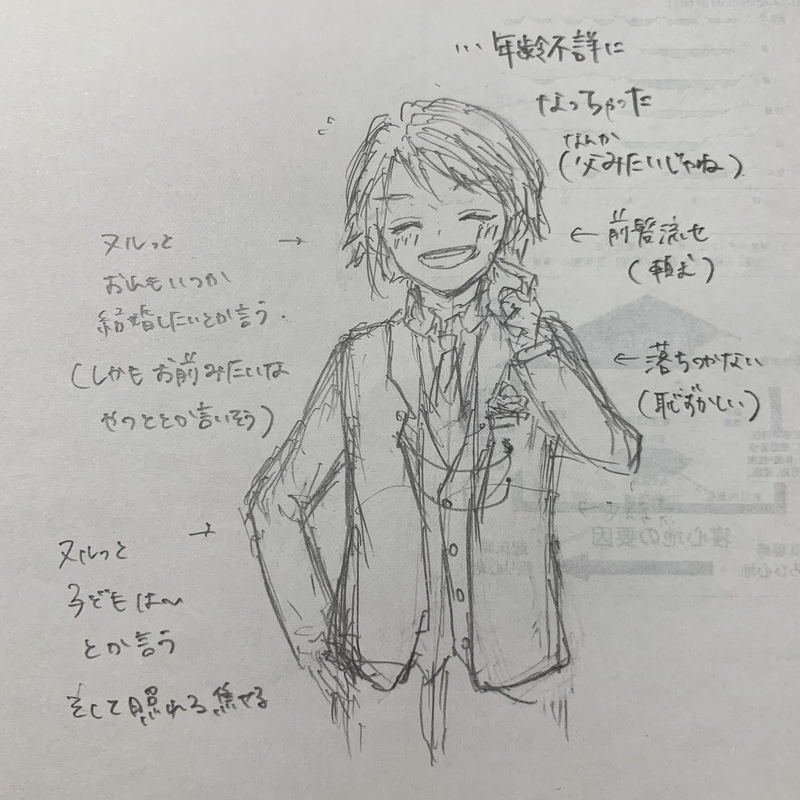 … 年齢不詳に
なっちゃった
なんか
(父みたいじゃね)
← 前髪流せ
(頼む)
← 落ちつかない
(恥ずかしい)
ヌルっと →
おれもいつか
結婚したいとか言う.
(しかもお前みたいな
やつととか言いそう)
ヌルっと →
子どもは〜
とか言う
そして照れる焦せる
寝心地の要因